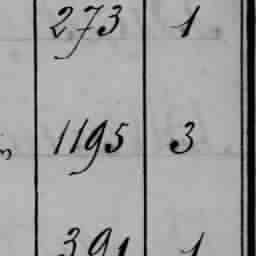 273 1
1195 3
391 1